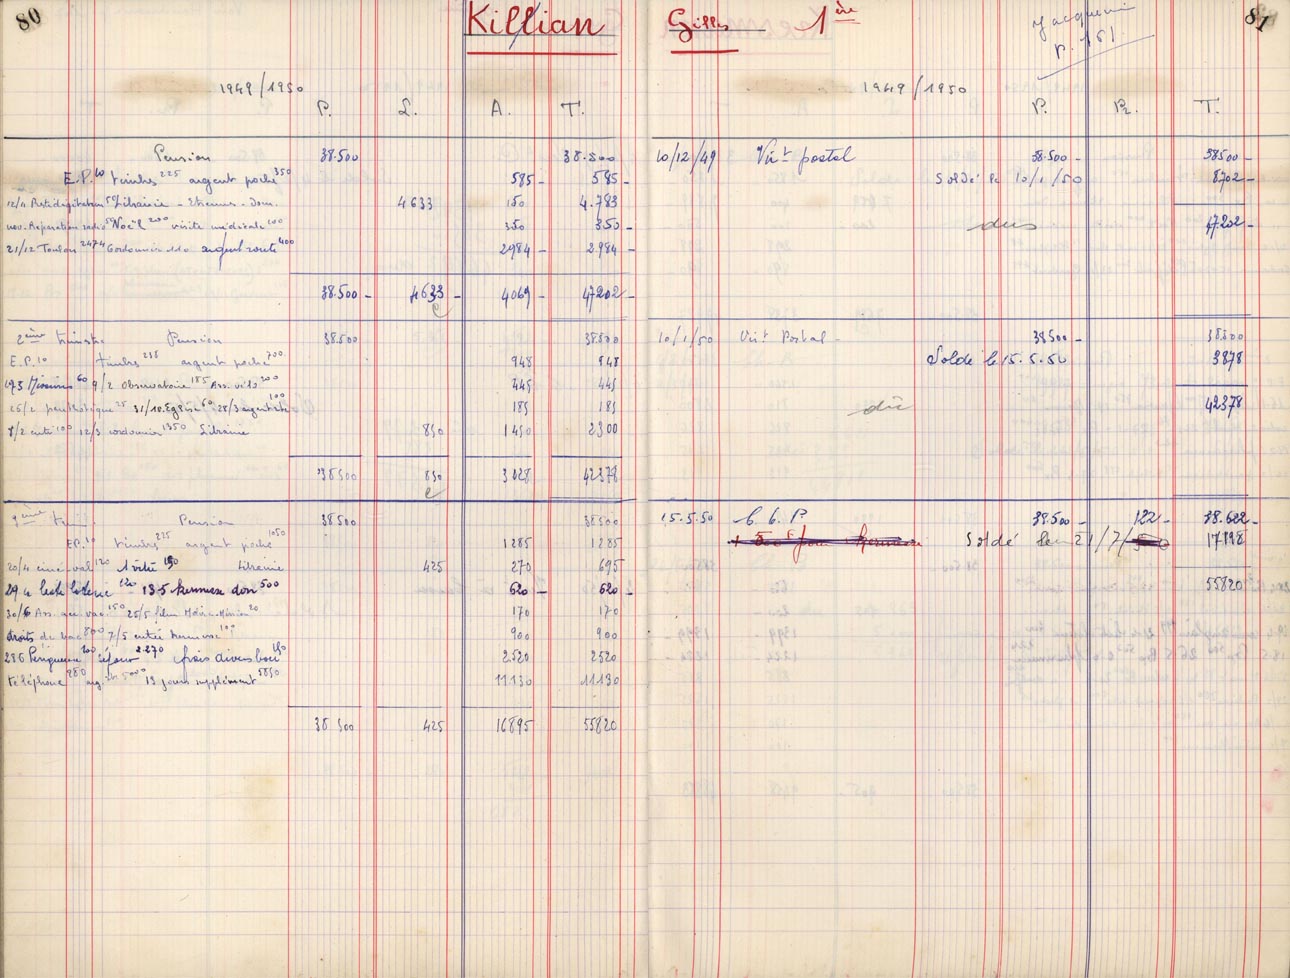 80
Killian Gilles 1ère
Jacquemin
p. 151.
81
1949/1950
P. L. A. T.
Pension 38.500 38.500
E.P.10 timbres 225 argent poche 350 585 - 585 -
12/11 Prestidigitation 150 Librairie - Etrennes - Dom. 4633 150 4.783
nov. Réparation radio 50 Noël 200 visite médicale 100 350 350 -
21/12 Toulon 2474 Cordonnier 110 argent route 400 2984 - 2.984 -
38.500 - 4633 - 4069 - 47202 -
2ème trimestre Pension 38500 38500
E.P.10 timbres 238 argent poche 700 948 948
60 9/2 Observatoire 185 200 445 445
25 31/1 Eglise 60 28/3 argent 100 185 185
100 12/3 cordonnier 1350 Librairie 850 1450 2300
38500 850 3028 42378
3ème trim. Pension 38500 38500
E.P.10 timbres 225 argent poche 1050 1285 1285
20/4 ciné-val 120 1 vélo 150 Librairie 425 270 695
120 - 13.5 kermesse don 500 620 - 620 -
30/6 150 25/5 film 20 170 170
droits de bac 800 7/5 entrée kermesse 100 900 900
28 6 Périgueux 100 séjour 2.270 frais divers bac 150 2520 2520
téléphone 280 arg. 5000 13 jours supplément 5850 11130 11130
38 500 425 16895 55820
1949/1950
P. Pr. T.
10/12/49 Virt postal 38.500 - 38500 -
Soldé le 10/1/50 8702 -
dus 47.202 -
10/1/50 Virt Postal - 38500 - 38500
Soldé le 15.5.50 3878
dû 42378
15.5.50 C. C. P. 38.500 - 122 - 38.622 -
Soldé le 21/7/ 17198
55820